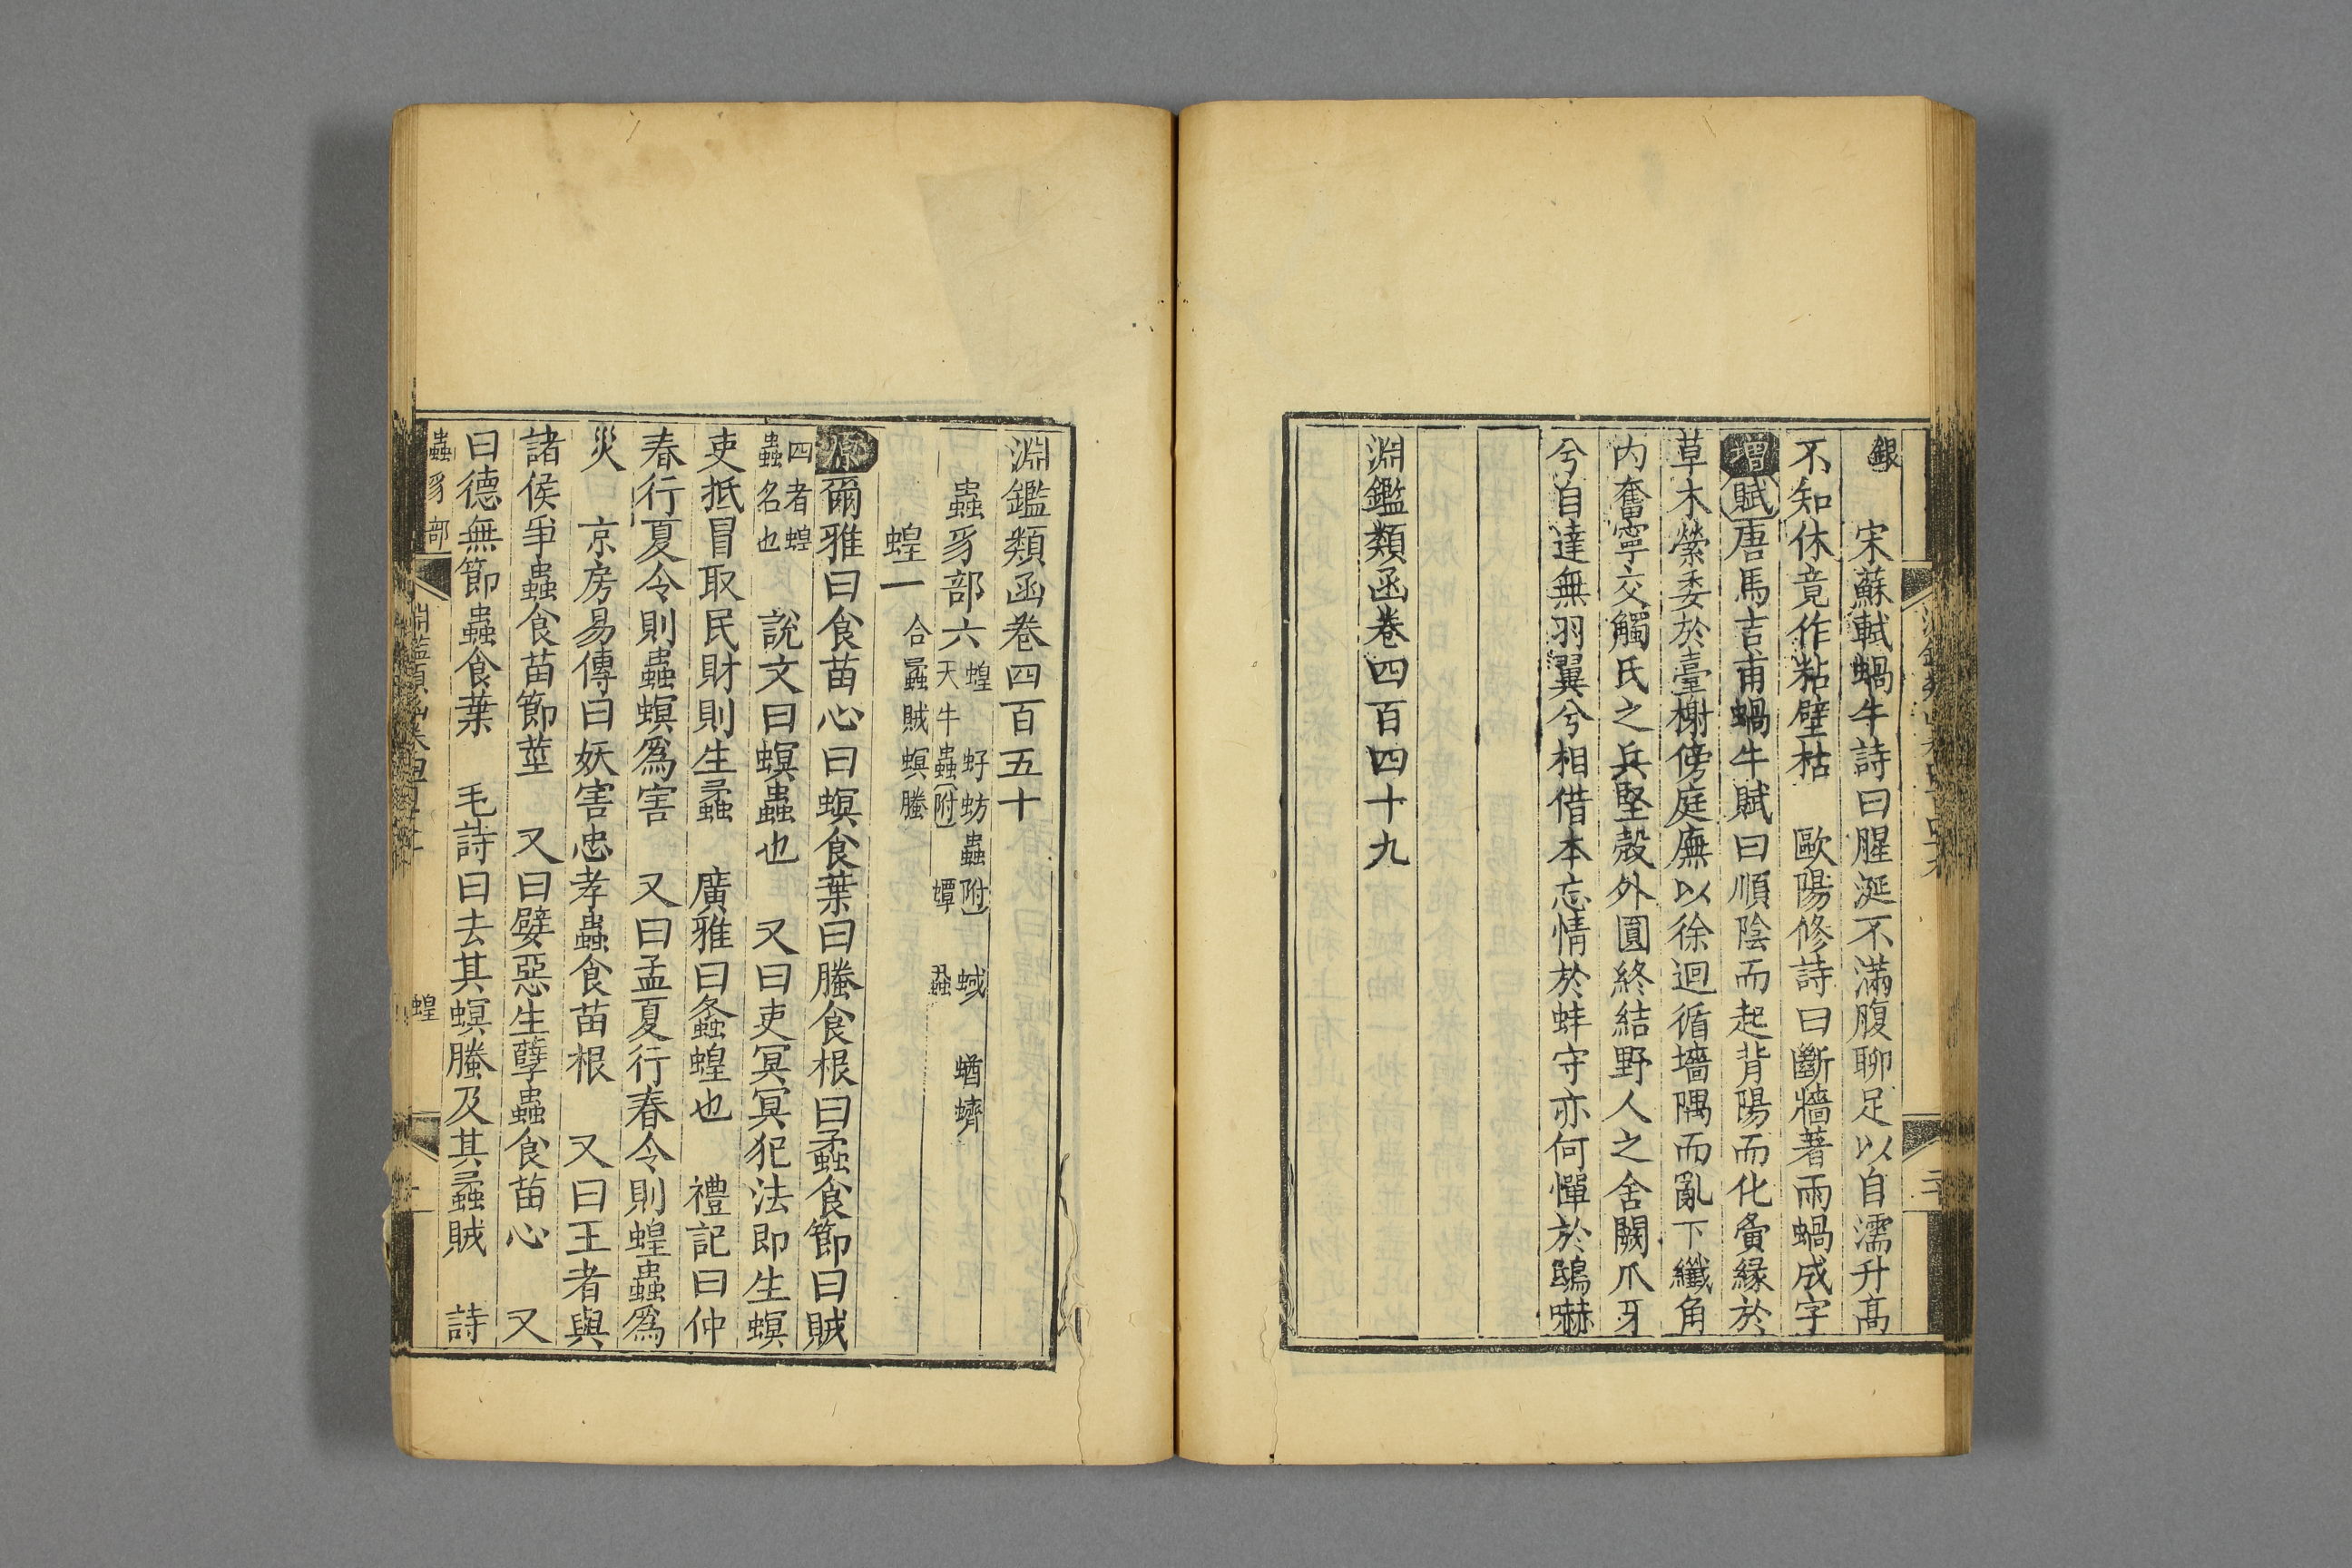 銀　宋蘇軾蝸牛詩曰腥涎不滿腹聊足以自濡升高
不知休竟作粘壁枯　歐陽修詩曰斷牆著雨蝸成字
增賦唐馬吉甫蝸牛賦曰順陰而起背陽而化夤緣於
草木縈委於臺榭傍庭廡以徐迴循墻隅而亂下纖角
內奮寧交觸氏之兵堅殼外圓終結野人之舍闕爪牙
兮自達無羽翼兮相借本忘情於蚌守亦何憚於鴟嚇
淵鑑類函卷四百四十九
淵鑑類函卷四百五十
蟲豸部六　蝗　虸蚄蟲附　蜮　蝤蠐
天牛蟲附　蟫　蝨
蝗一　合蟊賊螟螣
原爾雅曰食苗心曰螟食葉曰螣食根曰蟊食節曰賊
四者蝗
蟲名也　說文曰螟蟲也　又曰吏冥冥犯法即生螟
吏抵冒取民財則生蟊　廣雅曰螽蝗也　禮記曰仲
春行夏令則蟲螟為害　又曰孟夏行春令則蝗蟲為
災　京房易傳曰妖害忠孝蟲食苗根　又曰王者與
諸侯爭蟲食苗節莖　又曰嬖惡生孽蟲食苗心　又
曰德無節蟲食葉　毛詩曰去其螟螣及其蟊賊　詩
蟲豸部
蝗